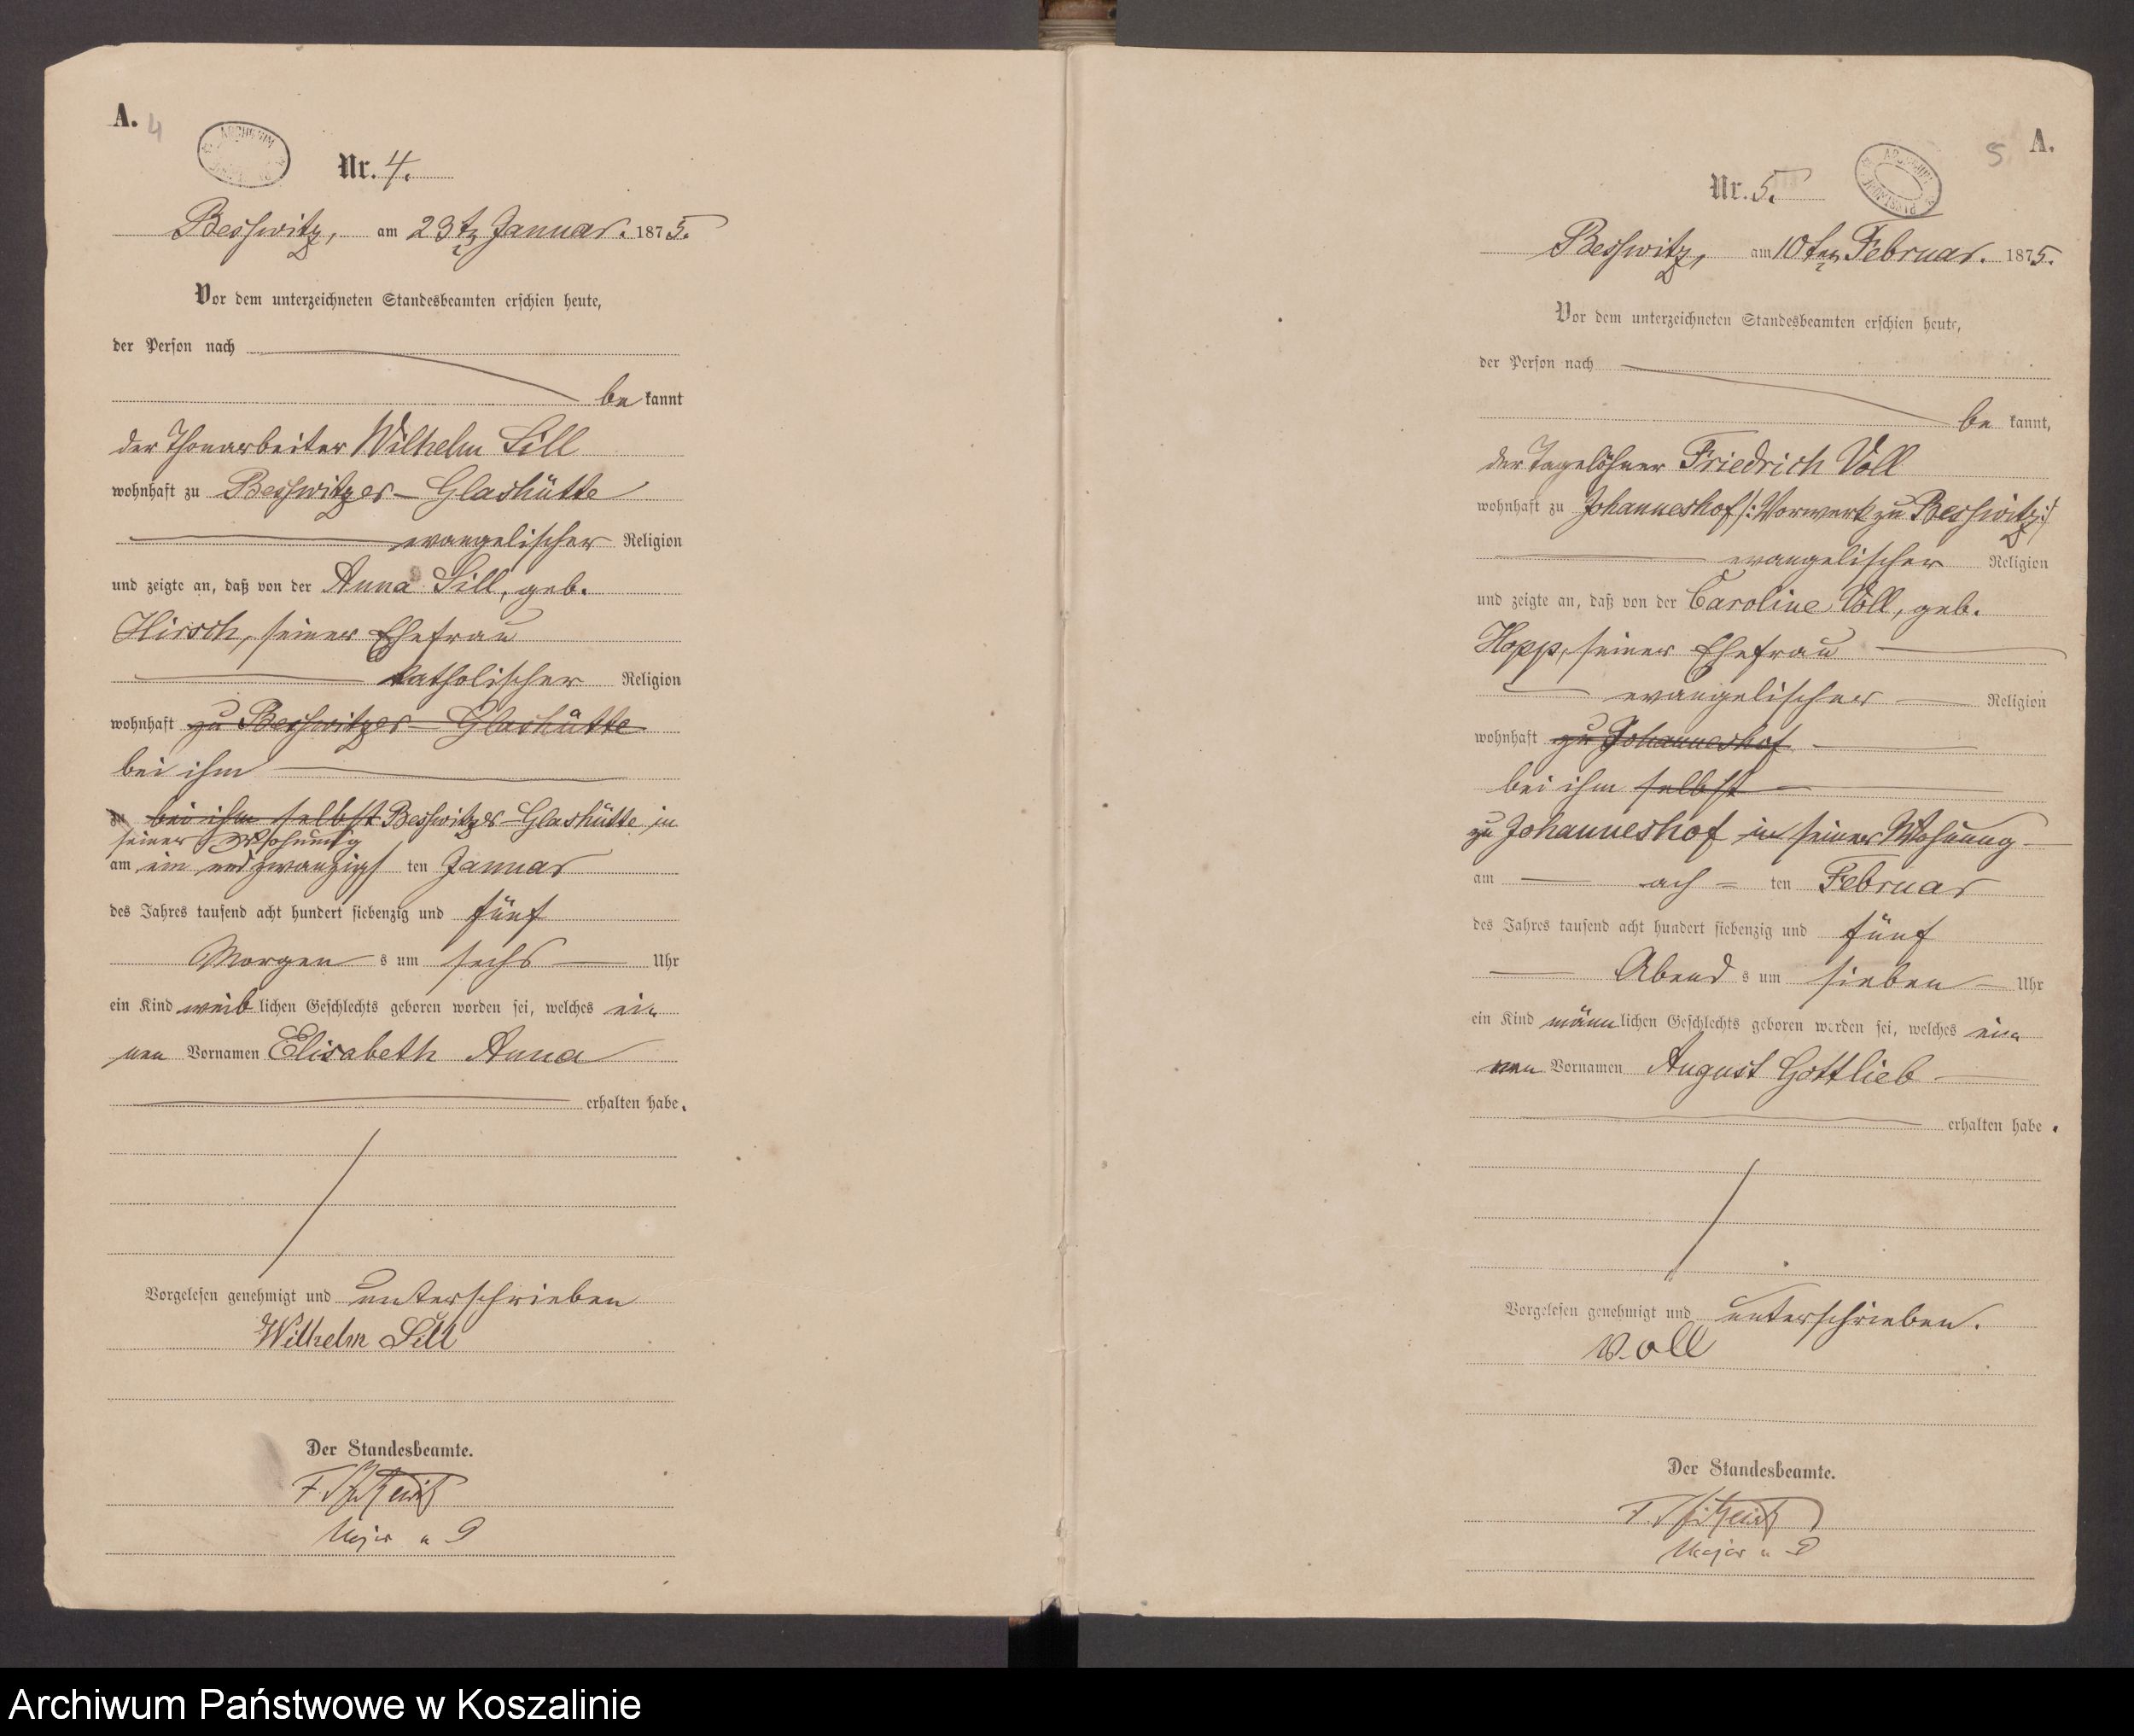 A. 4
Nr. 4.
Besswitz, am 23t Januar. 1875.
Vor dem unterzeichneten Standesbeamten erschien heute,
der Person nach
be kannt
der Thonarbeiter Wilhelm Sill
wohnhaft zu Besswitzer-Glashütte
evangelischer Religion
und zeigte an, daß von der Anna Sill, geb.
Hirsch, seiner Ehefrau
katholischer Religion
wohnhaft zu Besswitzer-Glashütte
bei ihm
zu bei ihm selbst Besswitzer-Glashütte in
seiner Wohnung
am ein und zwanzigs ten Januar
des Jahres tausend acht hundert siebenzig und fünf
Morgen s um sechs Uhr
ein Kind weib lichen Geschlechts geboren worden sei, welches ei-
nen Vornamen Elisabeth Anna
erhalten habe.
Vorgelesen genehmigt und unterschrieben
Wilhelm Sill
Der Standesbeamte.
Major a D
5 A.
Nr. 5.
Besswitz, am 10ten Februar. 1875.
Vor dem unterzeichneten Standesbeamten erschien heute,
der Person nach
be kannt,
der Tagelöhner Friedrich Voll
wohnhaft zu Johanneshof /: Vorwerk zu Besswitz :/
evangelischer Religion
und zeigte an, daß von der Caroline Voll, geb.
Hopp, seiner Ehefrau
evangelischer Religion
wohnhaft zu Johanneshof
bei ihm selbst
zu Johanneshof in seiner Wohnung
am ach- ten Februar
des Jahres tausend acht hundert siebenzig und fünf
Abend s um sieben Uhr
ein Kind männ lichen Geschlechts geboren worden sei, welches ei-
nen Vornamen August Gottlieb
erhalten habe.
Vorgelesen genehmigt und unterschrieben.
Voll
Der Standesbeamte.
Major a D
Archiwum Państwowe w Koszalinie